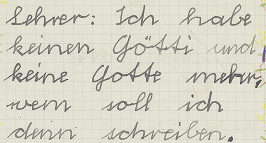 Lehrer: Ich habe
keinen Götti und
keine Gotte mehr,
wem soll ich
denn schreiben.